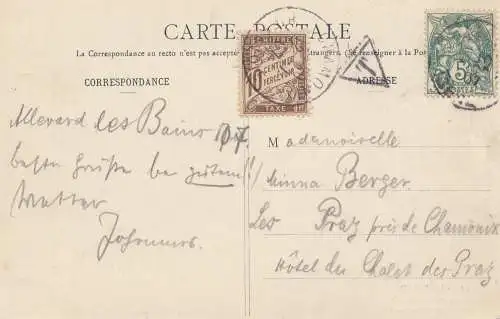 CARTE POSTALE
La Correspondance au recto n'est pas accepté Étrangers. (Se renseigner à la Post
CORRESPONDANCE
ADRESSE
CHIFFRE
10
CENTIMES
À PERCEVOIR
TAXE
T
5
Allevard les Bains
beste Grüße bei gutem!!
Wetter
Johannes.
Mademoiselle
Minna Berger
Les Praz près de Chamonix
Hôtel du Chalet des Praz